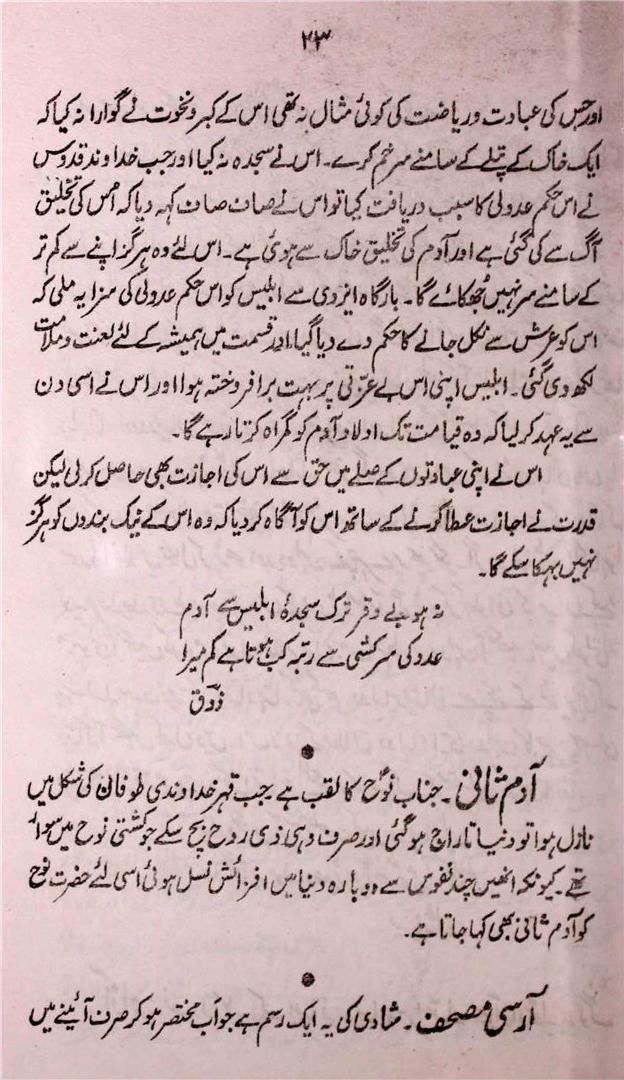 ۲۳
اور جس کی عبادت و ریاضت کی کوئی مثال نہ تھی اس کے کبر و نخوت نے گوارا نہ کیا کہ
ایک خاک کے پتلے کے سامنے سر خم کرے۔ اس نے سجدہ نہ کیا اور جب خداوند قدوس
نے اس حکم عدولی کا سبب دریافت کیا تو اس نے صاف صاف کہہ دیا کہ اس کی تخلیق
آگ سے کی گئی ہے اور آدم کی تخلیق خاک سے ہوئی ہے۔ اس لئے وہ ہرگز اپنے سے کم تر
کے سامنے سر نہیں جُھکائے گا۔ بارگاہ ایزدی سے ابلیس کو اس حکم عدولی کی سزا یہ ملی کہ
اس کو عرش سے نکل جانے کا حکم دے دیا گیا، اور قسمت میں ہمیشہ کے لئے لعنت و ملامت
لکھ دی گئی۔ ابلیس اپنی اس بے عزّتی پر بہت برافروختہ ہوا اور اس نے اسی دن
سے یہ عہد کر لیا کہ وہ قیامت تک اولاد آدم کو گمراہ کرتا رہے گا۔
اس نے اپنی عبادتوں کے صلے میں حق سے اس کی اجازت بھی حاصل کر لی لیکن
قدرت نے اجازت عطا کرنے کے ساتھ اس کو آگاہ کر دیا کہ وہ اس کے نیک بندوں کو ہرگز
نہیں بہکا سکے گا۔
نہ ہو بے وقر ترک سجدۂ ابلیس سے آدم
عدو کی سرکشی سے رتبہ کب ہوتا ہے کم میرا
ذوقؔ
آدم ثانی۔ جناب نوحؑ کا لقب ہے۔ جب قہر خداوندی طوفان کی شکل میں
نازل ہوا تو دنیا تاراج ہو گئی اور صرف وہی ذی روح بچ سکے جو کشتی نوح میں سوار
تھے۔ کیونکہ انھیں چند نفوس سے دوبارہ دنیا میں افزائش نسل ہوئی اسی لئے حضرت نوح
کو آدم ثانی بھی کہا جاتا ہے۔
آرسی مصحف۔ شادی کی یہ ایک رسم ہے جو اب مختصر ہو کر صرف آئینے میں